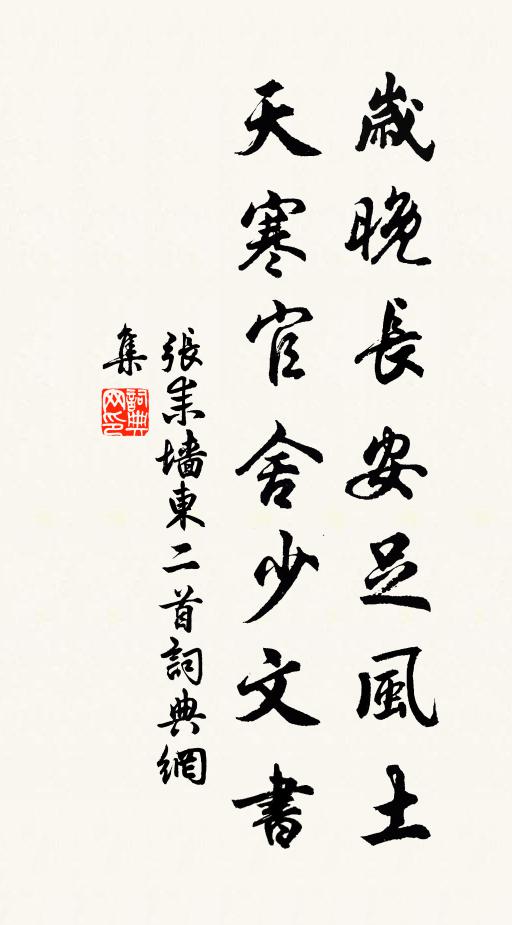 歲晚長安足風土
天寒官舍少文書
張耒墙東二首詞典網
集
詞典
网印